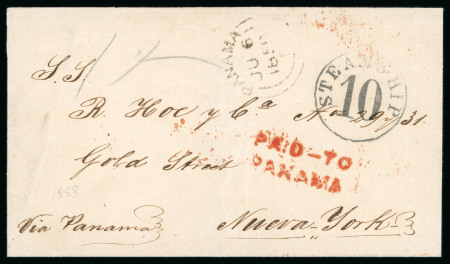 PANAMA
JU 6
STEAMSHIP
10
S. S.
R. Hoe y Ca Nos 29 y 31
Gold Street
PAID-TO
PANAMA
1858
Via Panama
Nueva-York